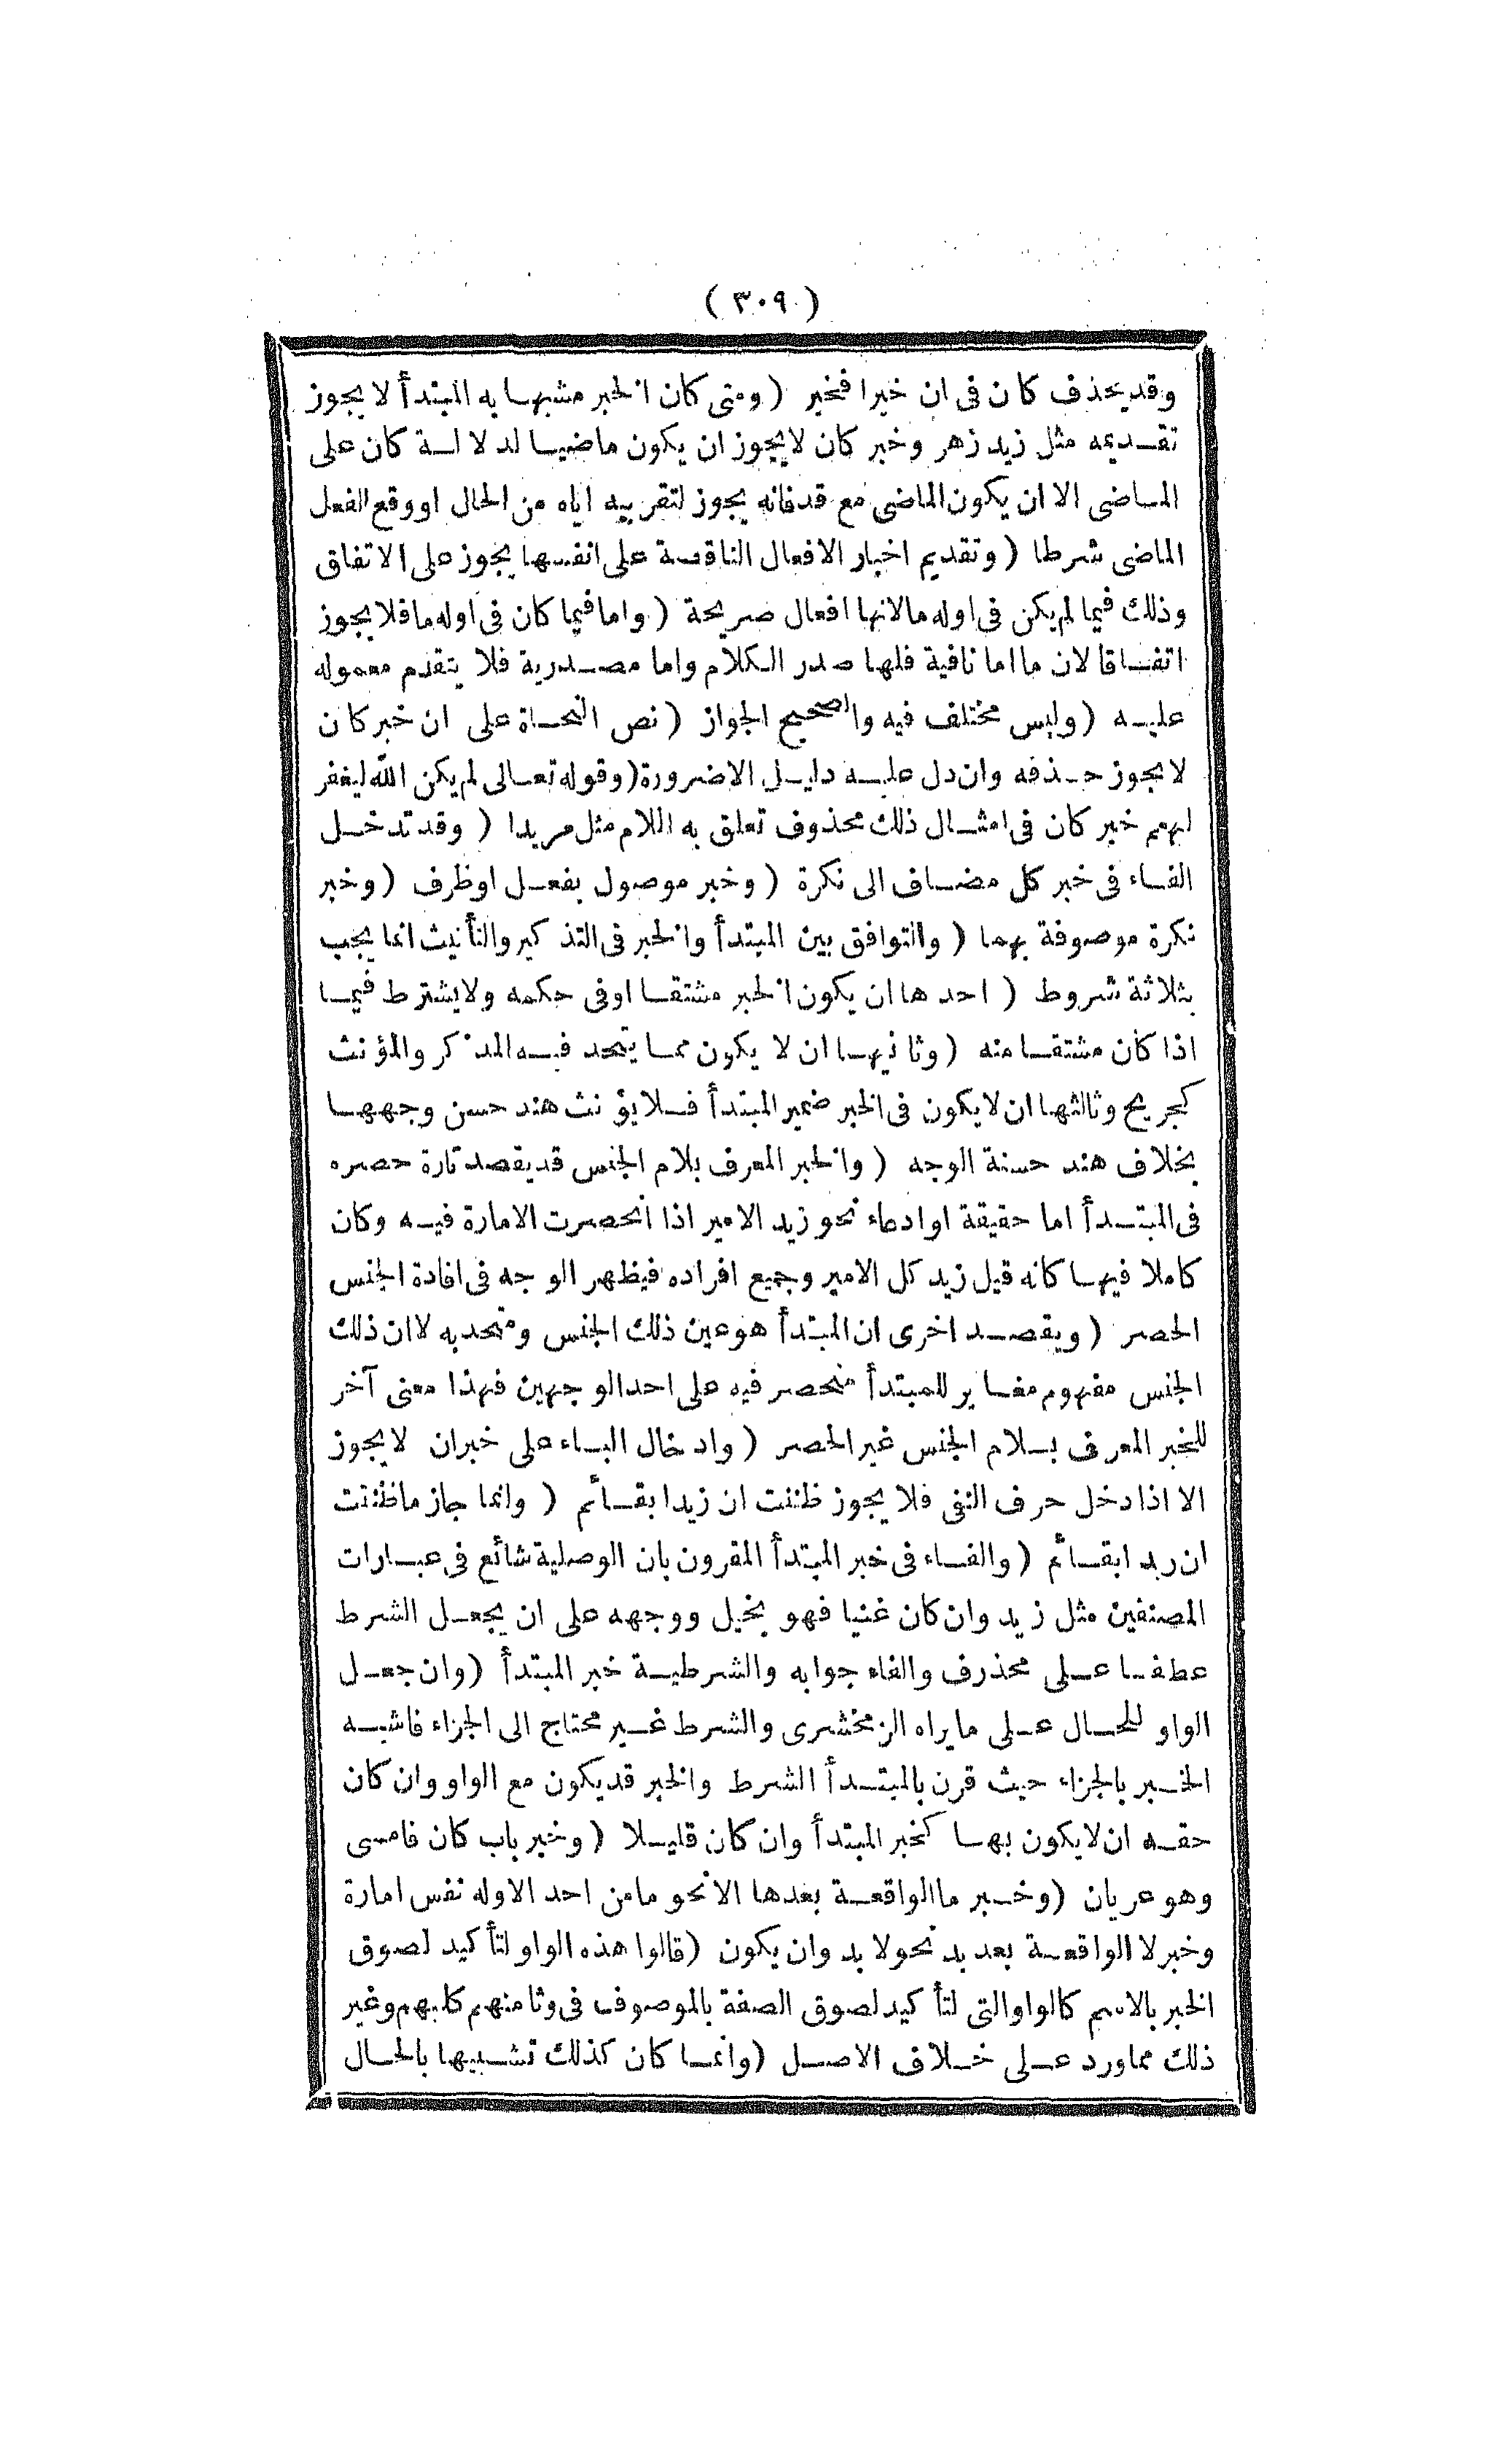 ( ٣٠٩ )
وقد يحذف كان فى ان خيرا فخير ( ومتى كان الخبر مشبها به المبتدأ لا يجوز
تقديمه مثل زيد زهر وخبر كان لا يجوز ان يكون ماضيا لدلالة كان على
الماضى الا ان يكون الماضى مع قد فانه يجوز لتقريبه اياه من الحال او وقع الفعل
الماضى شرطا ( وتقديم اخبار الافعال الناقصة على انفسها يجوز على الاتفاق
وذلك فيما لم يكن فى اوله ما لانها افعال صريحة ( واما فيما كان فى اوله ما فلا يجوز
اتفاقا لان ما اما نافية فلها صدر الكلام واما مصدرية فلا يتقدم معموله
عليه ( وليس مختلف فيه والصحيح الجواز ( نص النحاة على ان خبر كان
لا يجوز حذفه وان دل عليه دليل الا ضرورة ( وقوله تعالى لم يكن الله ليغفر
لهم خبر كان فى امثال ذلك محذوف تعلق به اللام مثل مريدا ( وقد تدخل
الفاء فى خبر كل مضاف الى نكرة ( وخبر موصول بفعل او ظرف ( وخبر
نكرة موصوفة بهما ( والتوافق بين المبتدأ والخبر فى التذكير والتأنيث انما يجب
بثلاثة شروط ( احدها ان يكون الخبر مشتقا او فى حكمه ولا يشترط فيما
اذا كان مشتقا منه ( وثانيها ان لا يكون مما يتحد فيه المذكر والمؤنث
كجريح وثالثها ان لا يكون فى الخبر ضمير المبتدأ فلا يؤنث هند حسن وجهها
بخلاف هند حسنة الوجه ( والخبر المعرف بلام الجنس قد يقصد تارة حصره
فى المبتدأ اما حقيقة او ادعاء نحو زيد الامير اذا انحصرت الامارة فيه وكان
كاملا فيها كانه قيل زيد كل الامير وجميع افراده فيظهر الوجه فى افادة الجنس
الحصر ( ويقصد اخرى ان المبتدأ هو عين ذلك الجنس ومتحد به لا ان ذلك
الجنس مفهوم مغاير للمبتدأ منحصر فيه على احد الوجهين فهذا معنى آخر
للخبر المعرف بلام الجنس غير الحصر ( وادخال الباء على خبر ان لا يجوز
الا اذا دخل حرف النفى فلا يجوز ظننت ان زيدا بقائم ( وانما جاز ما ظننت
ان زيدا بقائم ( والفاء فى خبر المبتدأ المقرون بان الوصلية شائع فى عبارات
المصنفين مثل زيد وان كان غنيا فهو بخيل ووجهه على ان يجعل الشرط
عطفا على محذوف والفاء جوابه والشرطية خبر المبتدأ ( وان جعل
الواو للحال على ما يراه الزمخشرى والشرط غير محتاج الى الجزاء فاشبه
الخبر بالجزاء حيث قرن بالمبتدأ الشرط والخبر قد يكون مع الواو وان كان
حقه ان لا يكون بها كخبر المبتدأ وان كان قليلا ( وخبر باب كان فامسى
وهو عريان ( وخبر ما الواقعة بعدها الا نحو ما من احد الا وله نفس امارة
وخبر لا الواقعة بعد بد نحو لا بد وان يكون ( قالوا هذه الواو لتأكيد لصوق
الخبر بالاسم كالواو التى لتأكيد لصوق الصفة بالموصوف فى وثامنهم كلبهم وغير
ذلك مما ورد على خلاف الاصل ( وانما كان كذلك تشبيها بالحال